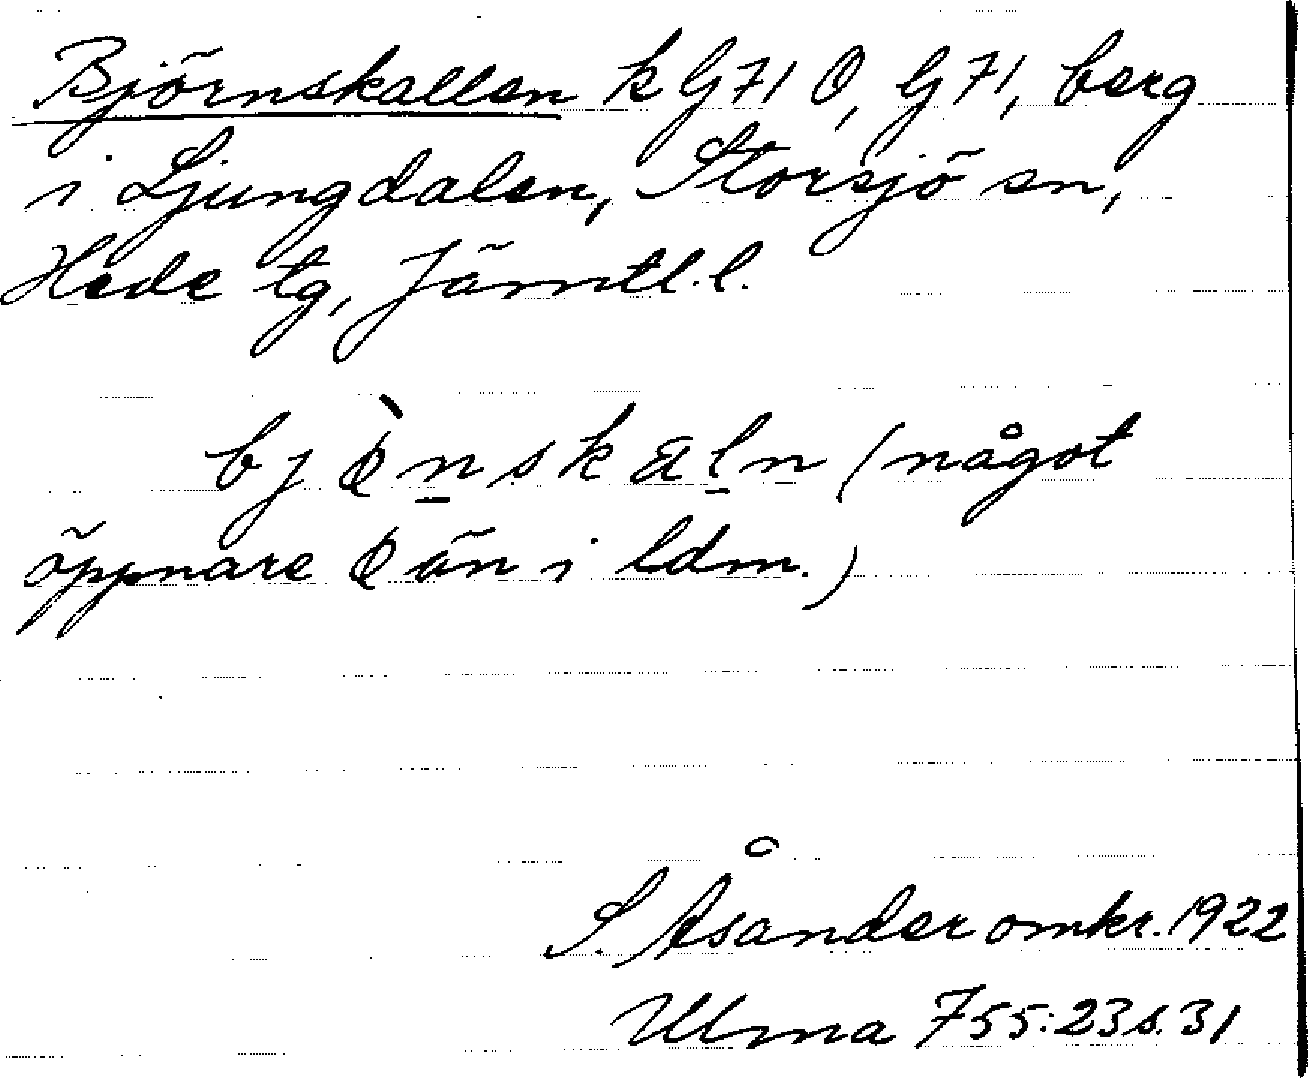 Björnskallen k G71 Ö, G71, berg
i Ljungdalen, Storsjö sn,
Hede tg, Jämtl.l.
bjφ̀n̲skal̲n (något
öppnare φ än i ldm.)
S. Åsander omkr. 1922
Ulma 755:23 s. 31